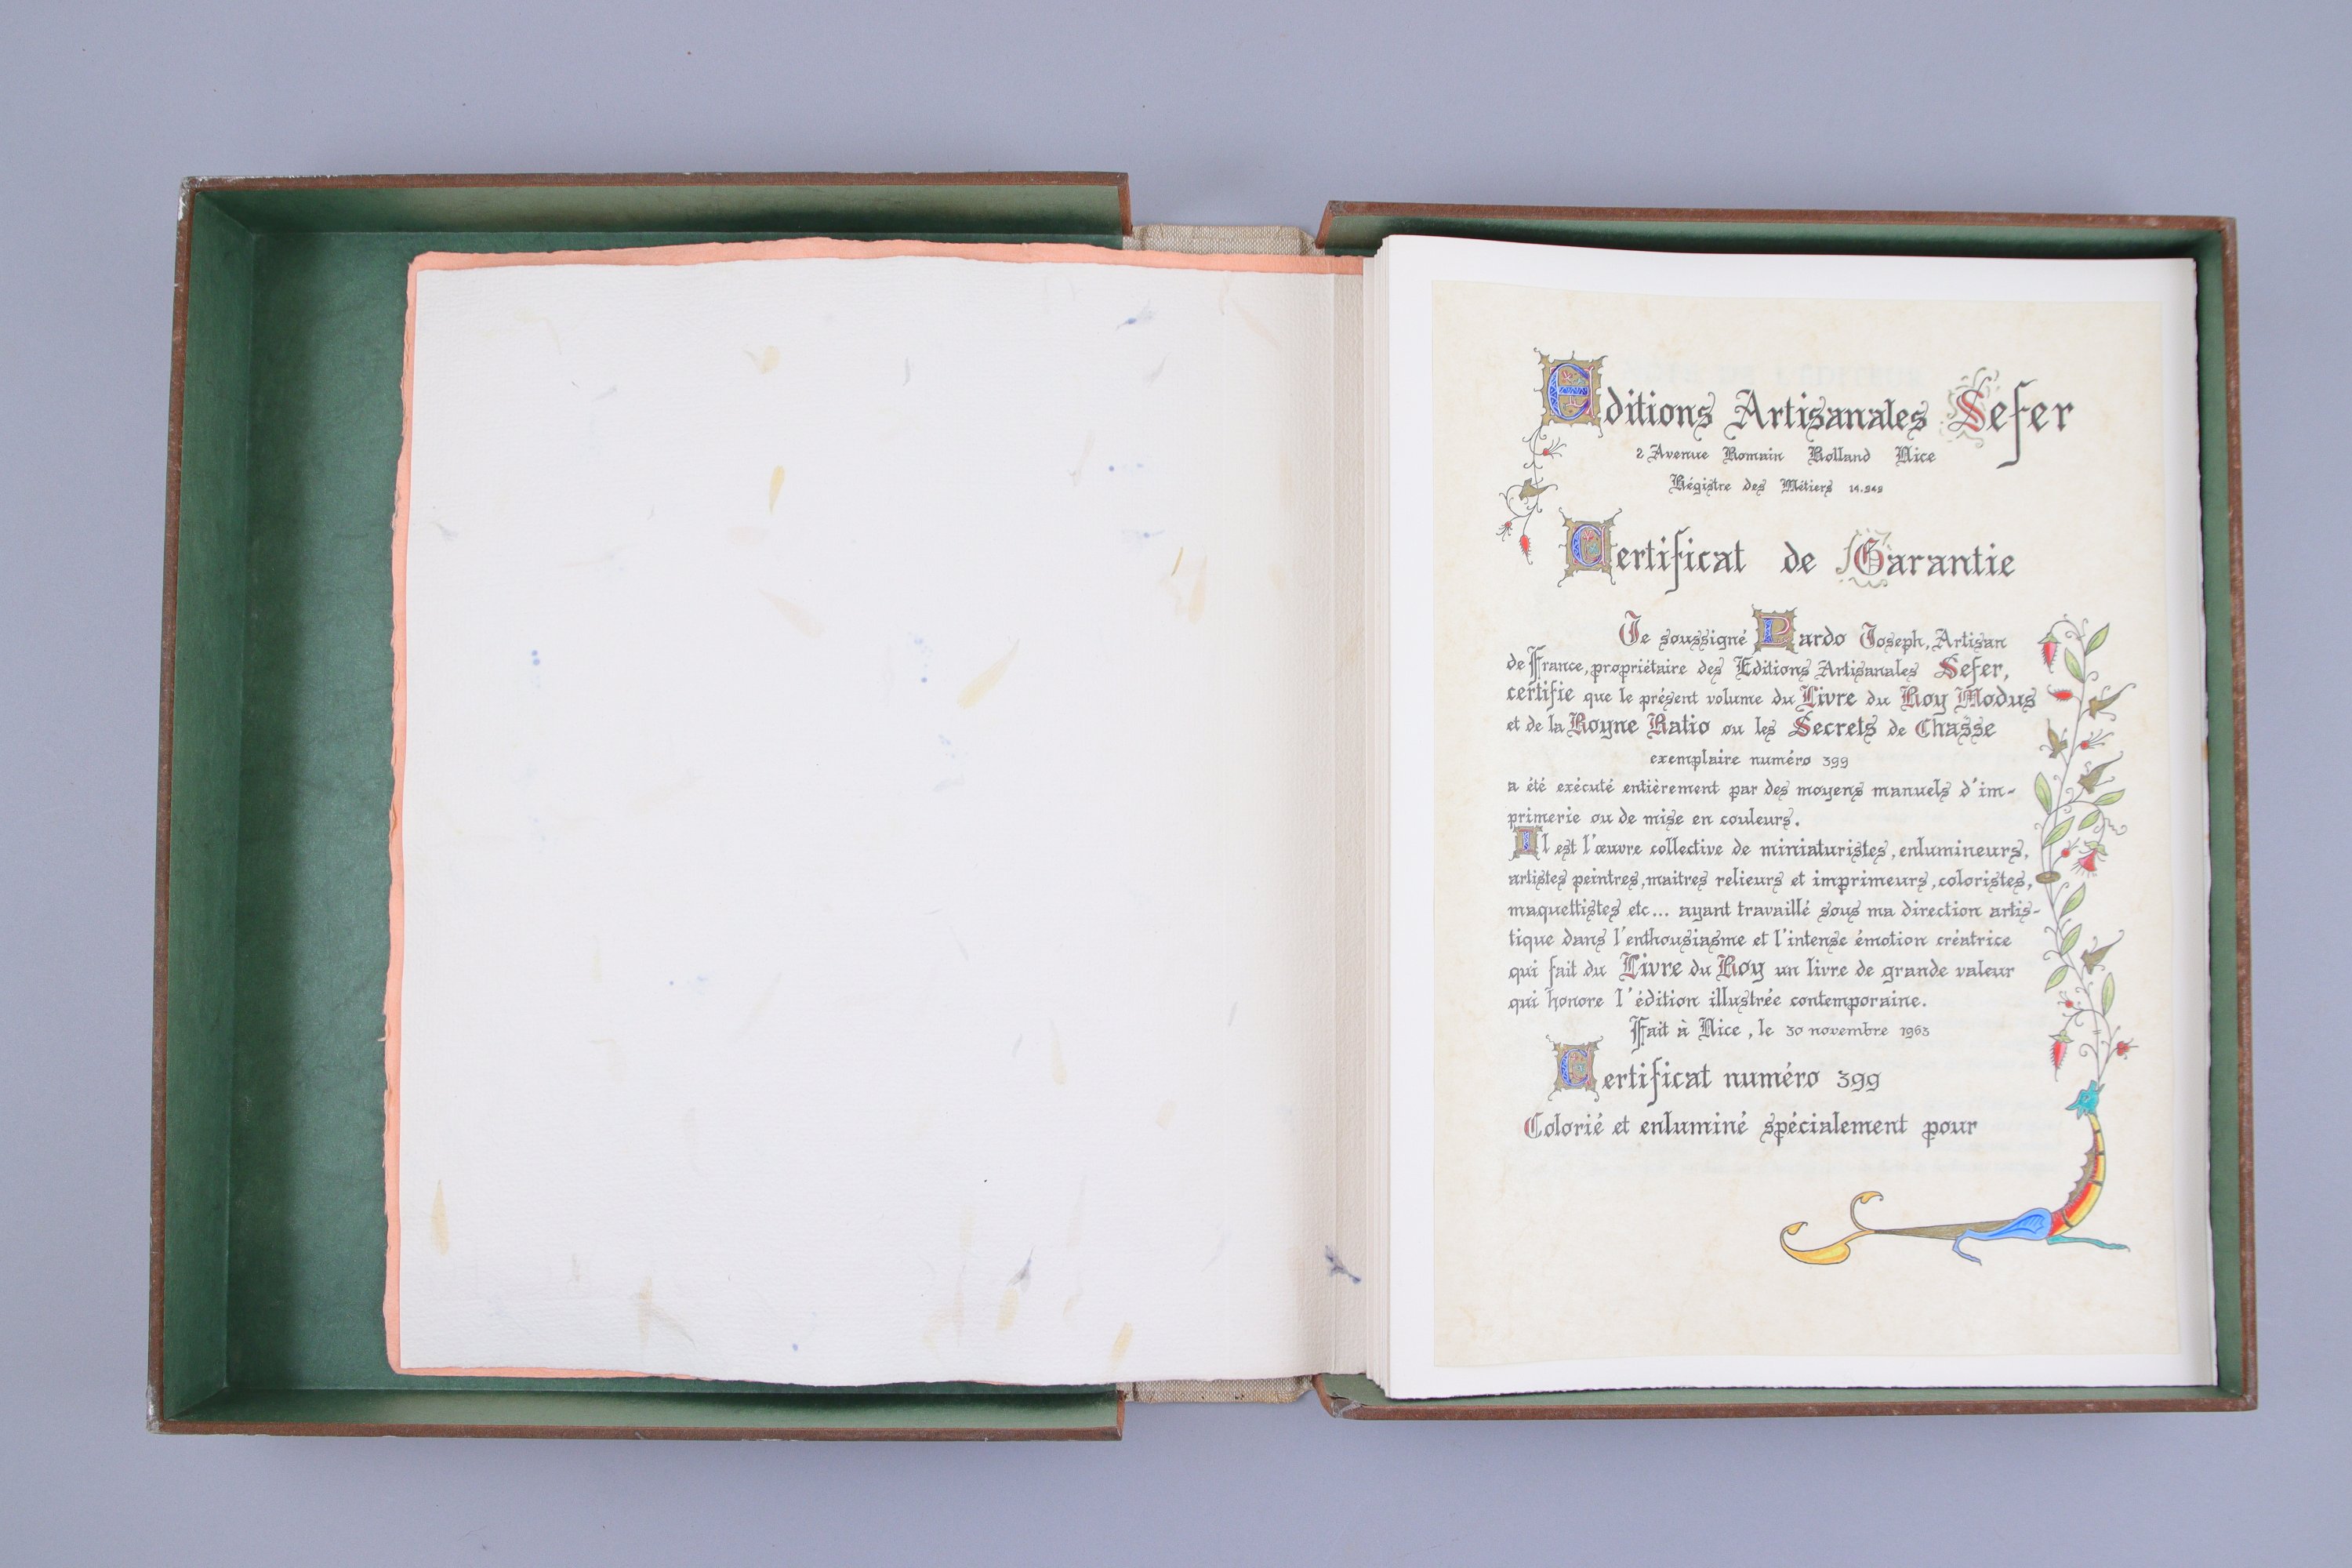 Editions Artisanales Sefer
2 Avenue Romain Rolland Nice
Régistre des Métiers
Certificat de Garantie
Je soussigné Pardo Joseph, Artisan
de France, propriétaire des Editions Artisanales Sefer,
certifie que le présent volume du Livre du Roy Modus
et de la Royne Ratio ou les Secrets de Chasse
exemplaire numéro 399
a été exécuté entièrement par des moyens manuels d'im-
primerie ou de mise en couleurs.
Il est l'œuvre collective de miniaturistes, enlumineurs,
artistes peintres, maitres relieurs et imprimeurs, coloristes,
maquettistes etc... ayant travaillé sous ma direction artis-
tique dans l'enthousiasme et l'intense émotion créatrice
qui fait du Livre du Roy un livre de grande valeur
qui honore l'édition illustrée contemporaine.
Fait à Nice, le 30 novembre 1963
Certificat numéro 399
Colorié et enluminé spécialement pour